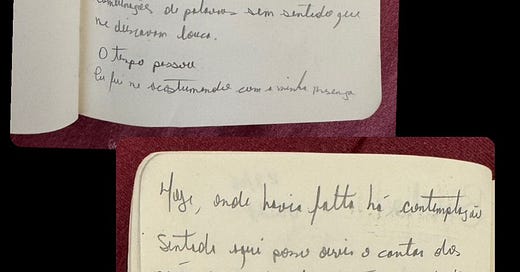 combinações de palavras sem sentido que
me deixavam louca.
O tempo passou
Eu fui me acostumando com a minha presença
Hoje, onde havia falta há contemplação
Sentada aqui posso ouvir o cantar dos